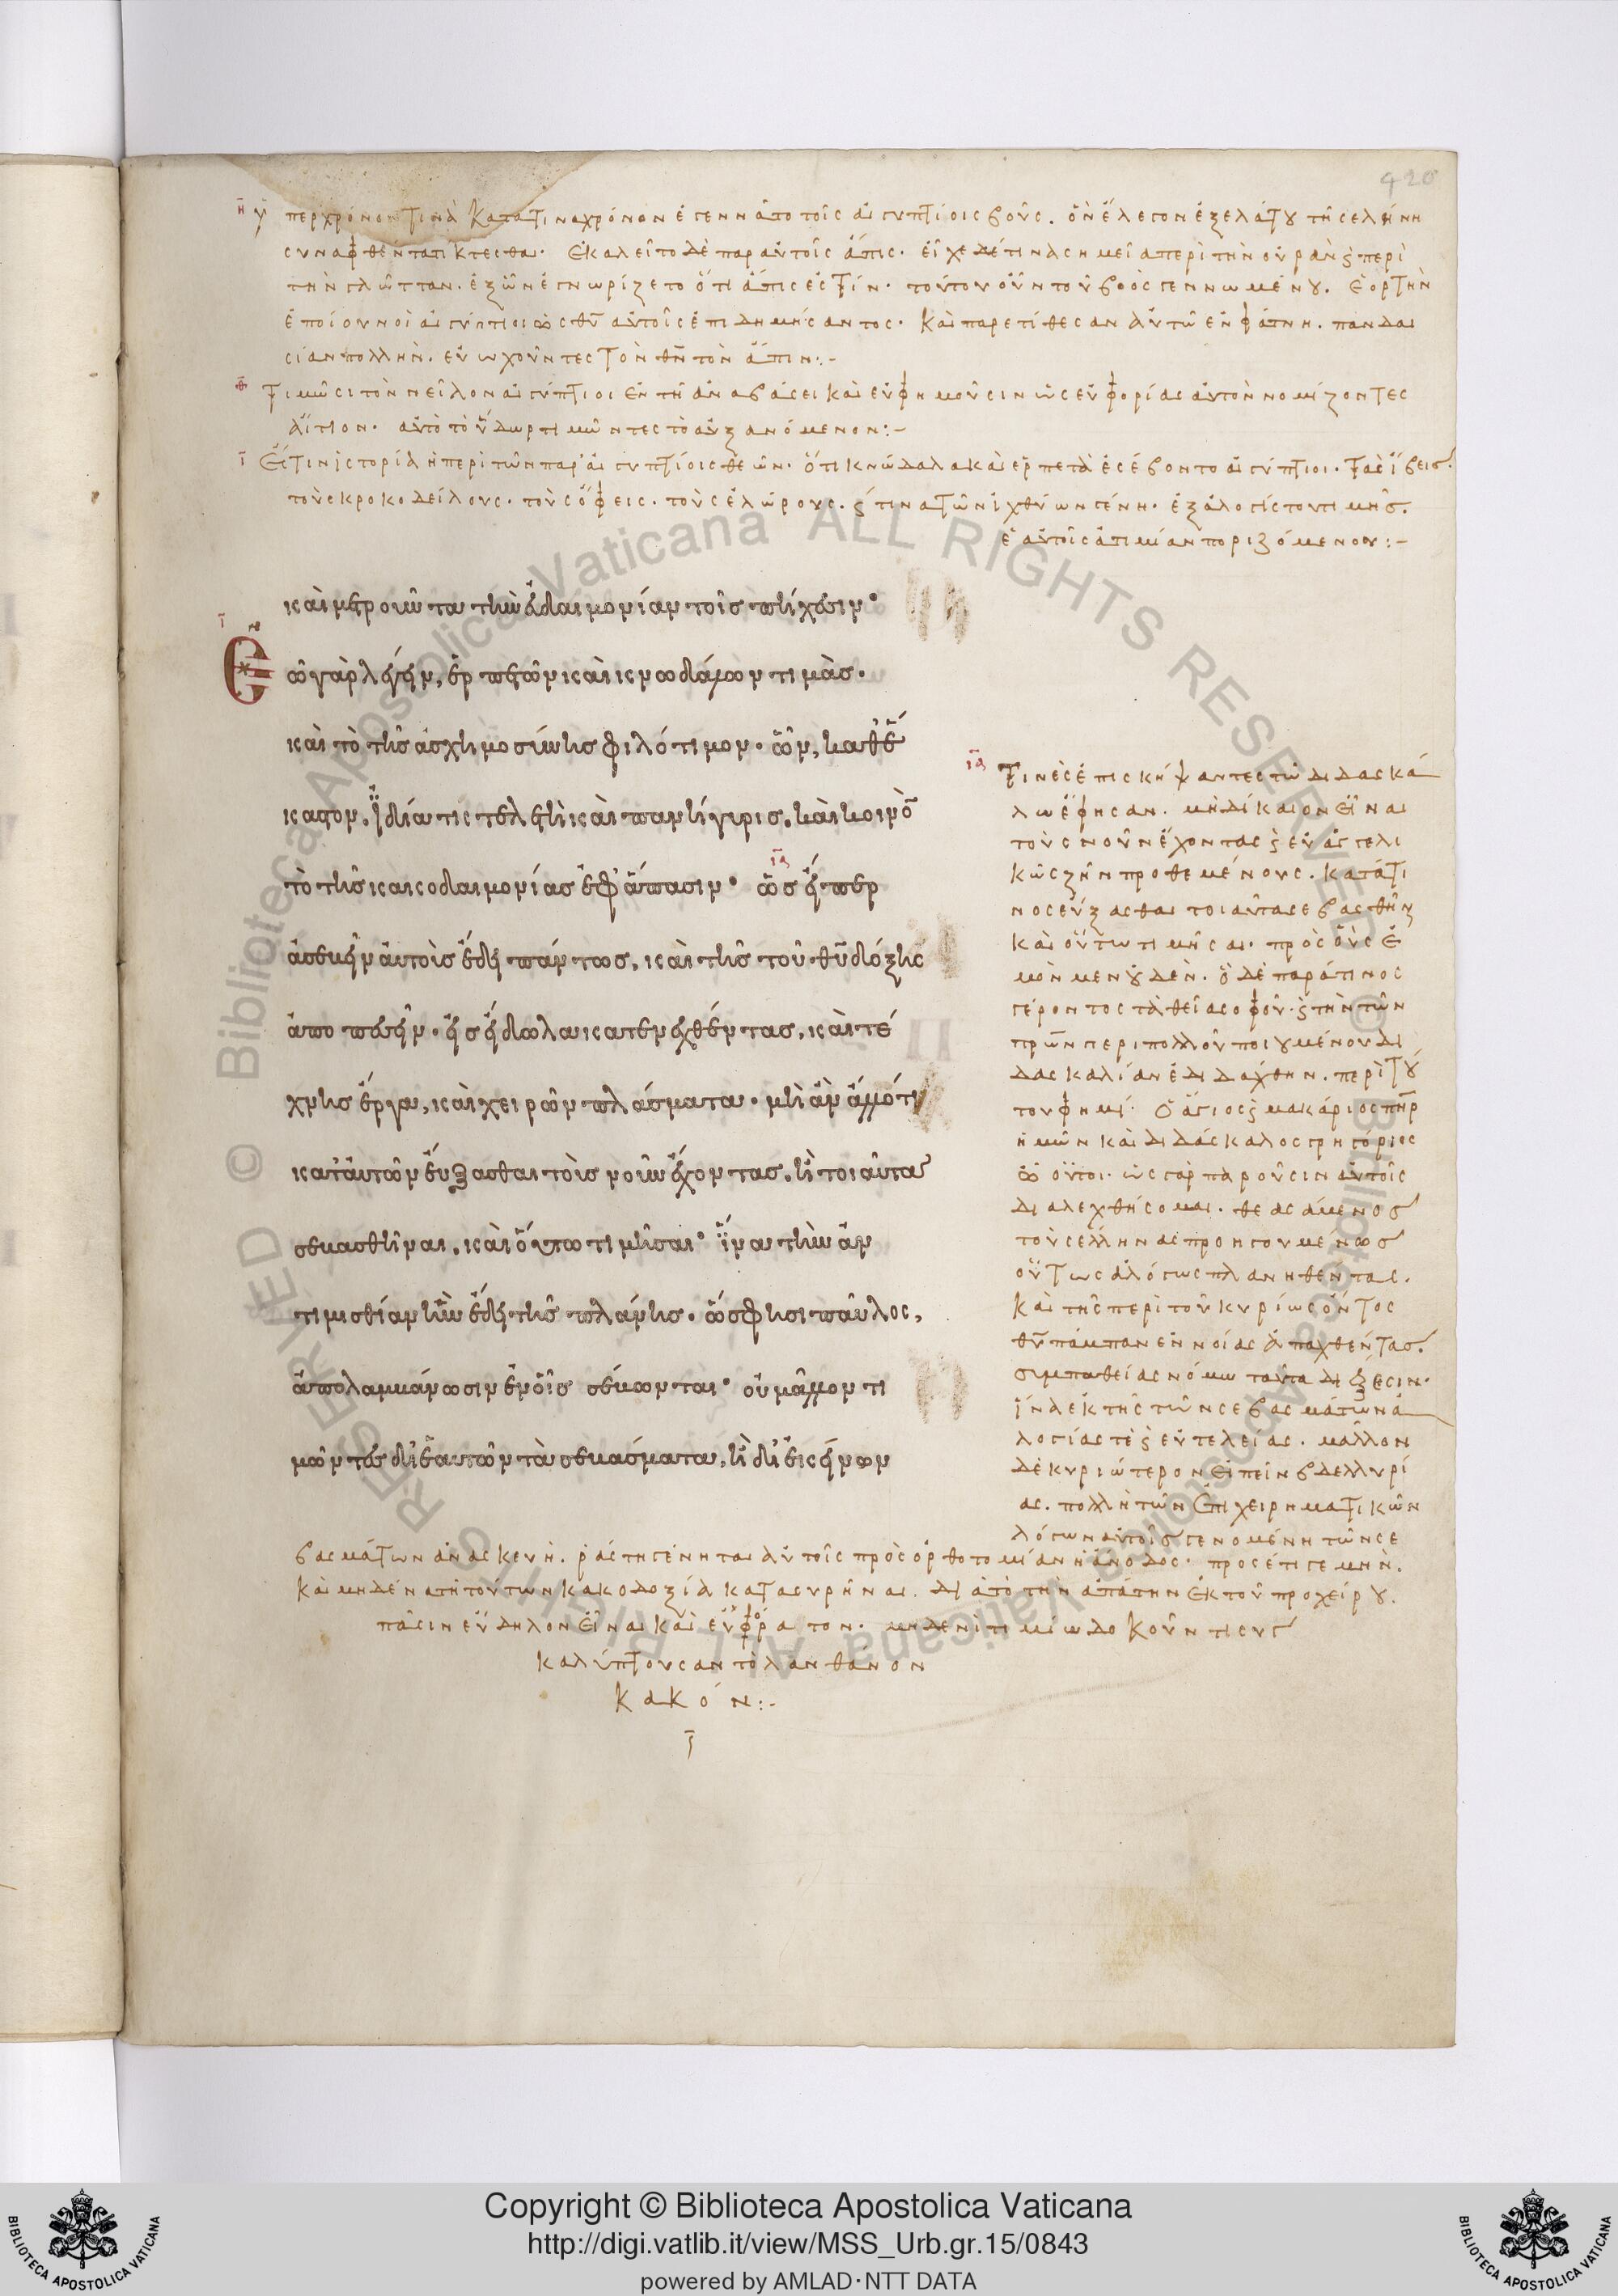 420
η ὑπερχρόνον τινὰ κατά τινα χρόνον ἐγεννᾶτο τοῖς αἰγυπτίοις βοῦς. ὃν ἔλεγον ἐξ ἐλάτου τῆς σελήνη
συναφθέντα τίκτεσθαι· ἐκαλεῖτο δὲ παρ αὐτοῖς ἄπις· εἶχε δέ τινα σημεῖα περὶ τὴν οὐρὰν ϗ περὶ
τὴν γλῶτταν. ἐξ ὧν ἐγνωρίζετο ὅτι ἄπις ἐστίν· τούτου οὖν τοῦ βοὸς γεννωμένου. ἑορτὴν
ἐποίουν οἱ αἰγύπτιοι ὡς θυ αὐτοῖς ἐπιδημήσαντος· καὶ παρετίθεσαν αὐτῶ ἐν φάτνη. πανδαι
σίαν πολλὴν. εὐωχοῦντες τὸν θν τὸν ἄπιν:-
θ τιμῶσι τὸν νεῖλον αἰγύπτιοι ἐν τῆ ἀναβάσει καὶ εὐφημοῦσιν ὡς εὐφορίας αὐτὸν νομίζοντες
αἴτιον· αὐτὸ τὸ ὕδωρ τιμῶντες τὸ αὐξανόμενον:-
ι ἔστιν ἱστορία ἡ περὶ τῶν παρ' αἰγυπτίοις θεῶν· ὅτι κνώδαλα καὶ ἑρπετὰ ἐσέβοντο αἰγύπτιοι· τὰς ἴβεις.
τοὺς κροκοδείλους. τοὺς ὄφεις. τοὺς ἐλώρους. ϗ τινα τῶν ἰχθύων γένη. ἐξ ἀλογίστου τιμῆς.
ἑαυτοῖς ἀτιμίαν ποριζόμενοι:-
καὶ μετροῦντα τὴν εὐδαιμονίαν τοῖς πήχεσιν·
ἐῶ γὰρ λέγειν, ἑρπετῶν καὶ κνωδάλων τιμὰς·
καὶ τὸ τῆς ἀσχημοσύνης φιλότιμον· ὧν, καθ' ἕ
καστον, ἰδία τις τελετὴ καὶ πανήγυρις. καὶ κοινὸν
τὸ τῆς κακοδαιμονίας ἐφ' ἅπασιν· ὡς εἴπερ
ἀσεβεῖν αὐτοὺς ἔδει πάντως, καὶ τῆς τοῦ θυ δόξης
ἀποπεσεῖν. εἰς εἴδωλα κατενεχθέντας, καὶ τέ
χνης ἔργα, καὶ χειρῶν πλάσματα· μὴ ἂν ἄλλό τι
κατ' αὐτῶν εὔξασθαι τοὺς νοῦν ἔχοντας, ἢ τοιαῦτα
σεβασθῆναι, καὶ οὕτω τιμῆσαι· ἵνα τὴν ἀν
τιμισθίαν ἣν ἔδει τῆς πλάνης. ὥς φησι παῦλος,
ἀπολαμβάνωσιν ἐν οἷς σέβονται· οὐ μᾶλλον τι
μῶντες δι' ἑαυτῶν τὰ σεβάσματα, ἢ δι' ἐκείνων
ια τινὲς ἐπισκήψαντες τῶ διδασκά
λω ἔφησαν. μὴ δίκαιον εἶναι
τοὺς νοῦν ἔχοντας ϗ εὐαγγελι
κῶς ζῆν προθεμένους. κατά τι
νος εὔξασθαι τοιαῦτα σεβασθῆν
καὶ οὕτω τιμῆσαι. πρὸς οὓς ἐ
μὸν μὲν οὐδὲν. ὃ δὲ παρά τινος
γέροντος τὰ θεῖα σοφοῦ. ϗ τὴν τῶν
πρων περὶ πολλοῦ ποιουμένου δι
δασκαλίαν ἐδιδάχθην. περὶ τού
του φημί· ὁ ἅγιος ϗ μακάριος πηρ
ἡμῶν καὶ διδάσκαλος γρηγόριος
ὦ οὗτοι. ὡς γὰρ παροῦσιν αὐτοῖς
διαλεχθήσομαι. θεασάμενος
τοὺς ἕλληνας προηγουμένως
οὕτως ἀλόγως πλανηθέντας.
καὶ τῆς περὶ τοῦ κυρίως ὄντος
θυ πάμπαν ἐννοίας ἀπαχθέντας.
συμπαθείας νόμω ταῦτα διέξεισιν.
ἵνα ἐκ τῆς τῶν σεβασμάτων ἀ
λογίας τὲ ϗ εὐτελείας. μᾶλλον
δὲ κυριώτερον εἰπεῖν βδελυρί
ας. πολλὴ τῶν ἐπιχειρηματικῶν
λόγων αὐτοῖς γενομένη τῶν σε
βασμάτων ἀνασκευὴ. ῥάστη γένηται αὐτοῖς πρὸς ὀρθοτομίαν ἡ ἄνοδος· προσέτι γε μὴν.
καὶ μηδένα τῆ τούτων κακοδοξία κατασυρῆναι. διὰ τὸ τὴν ἀπάτην ἐκ τοῦ προχείρου.
πᾶσιν εὔδηλον εἶναι καὶ εὐφώρατον. μηδενὶ τιμίω δοκοῦντι συγ
καλύπτουσαν τὸ λανθάνον
κακόν:-
Copyright © Biblioteca Apostolica Vaticana
http://digi.vatlib.it/view/MSS_Urb.gr.15/0843
powered by AMLAD·NTT DATA